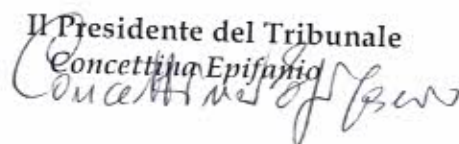 Il Presidente del Tribunale
Concettina Epifanio
Concettina Epifanio